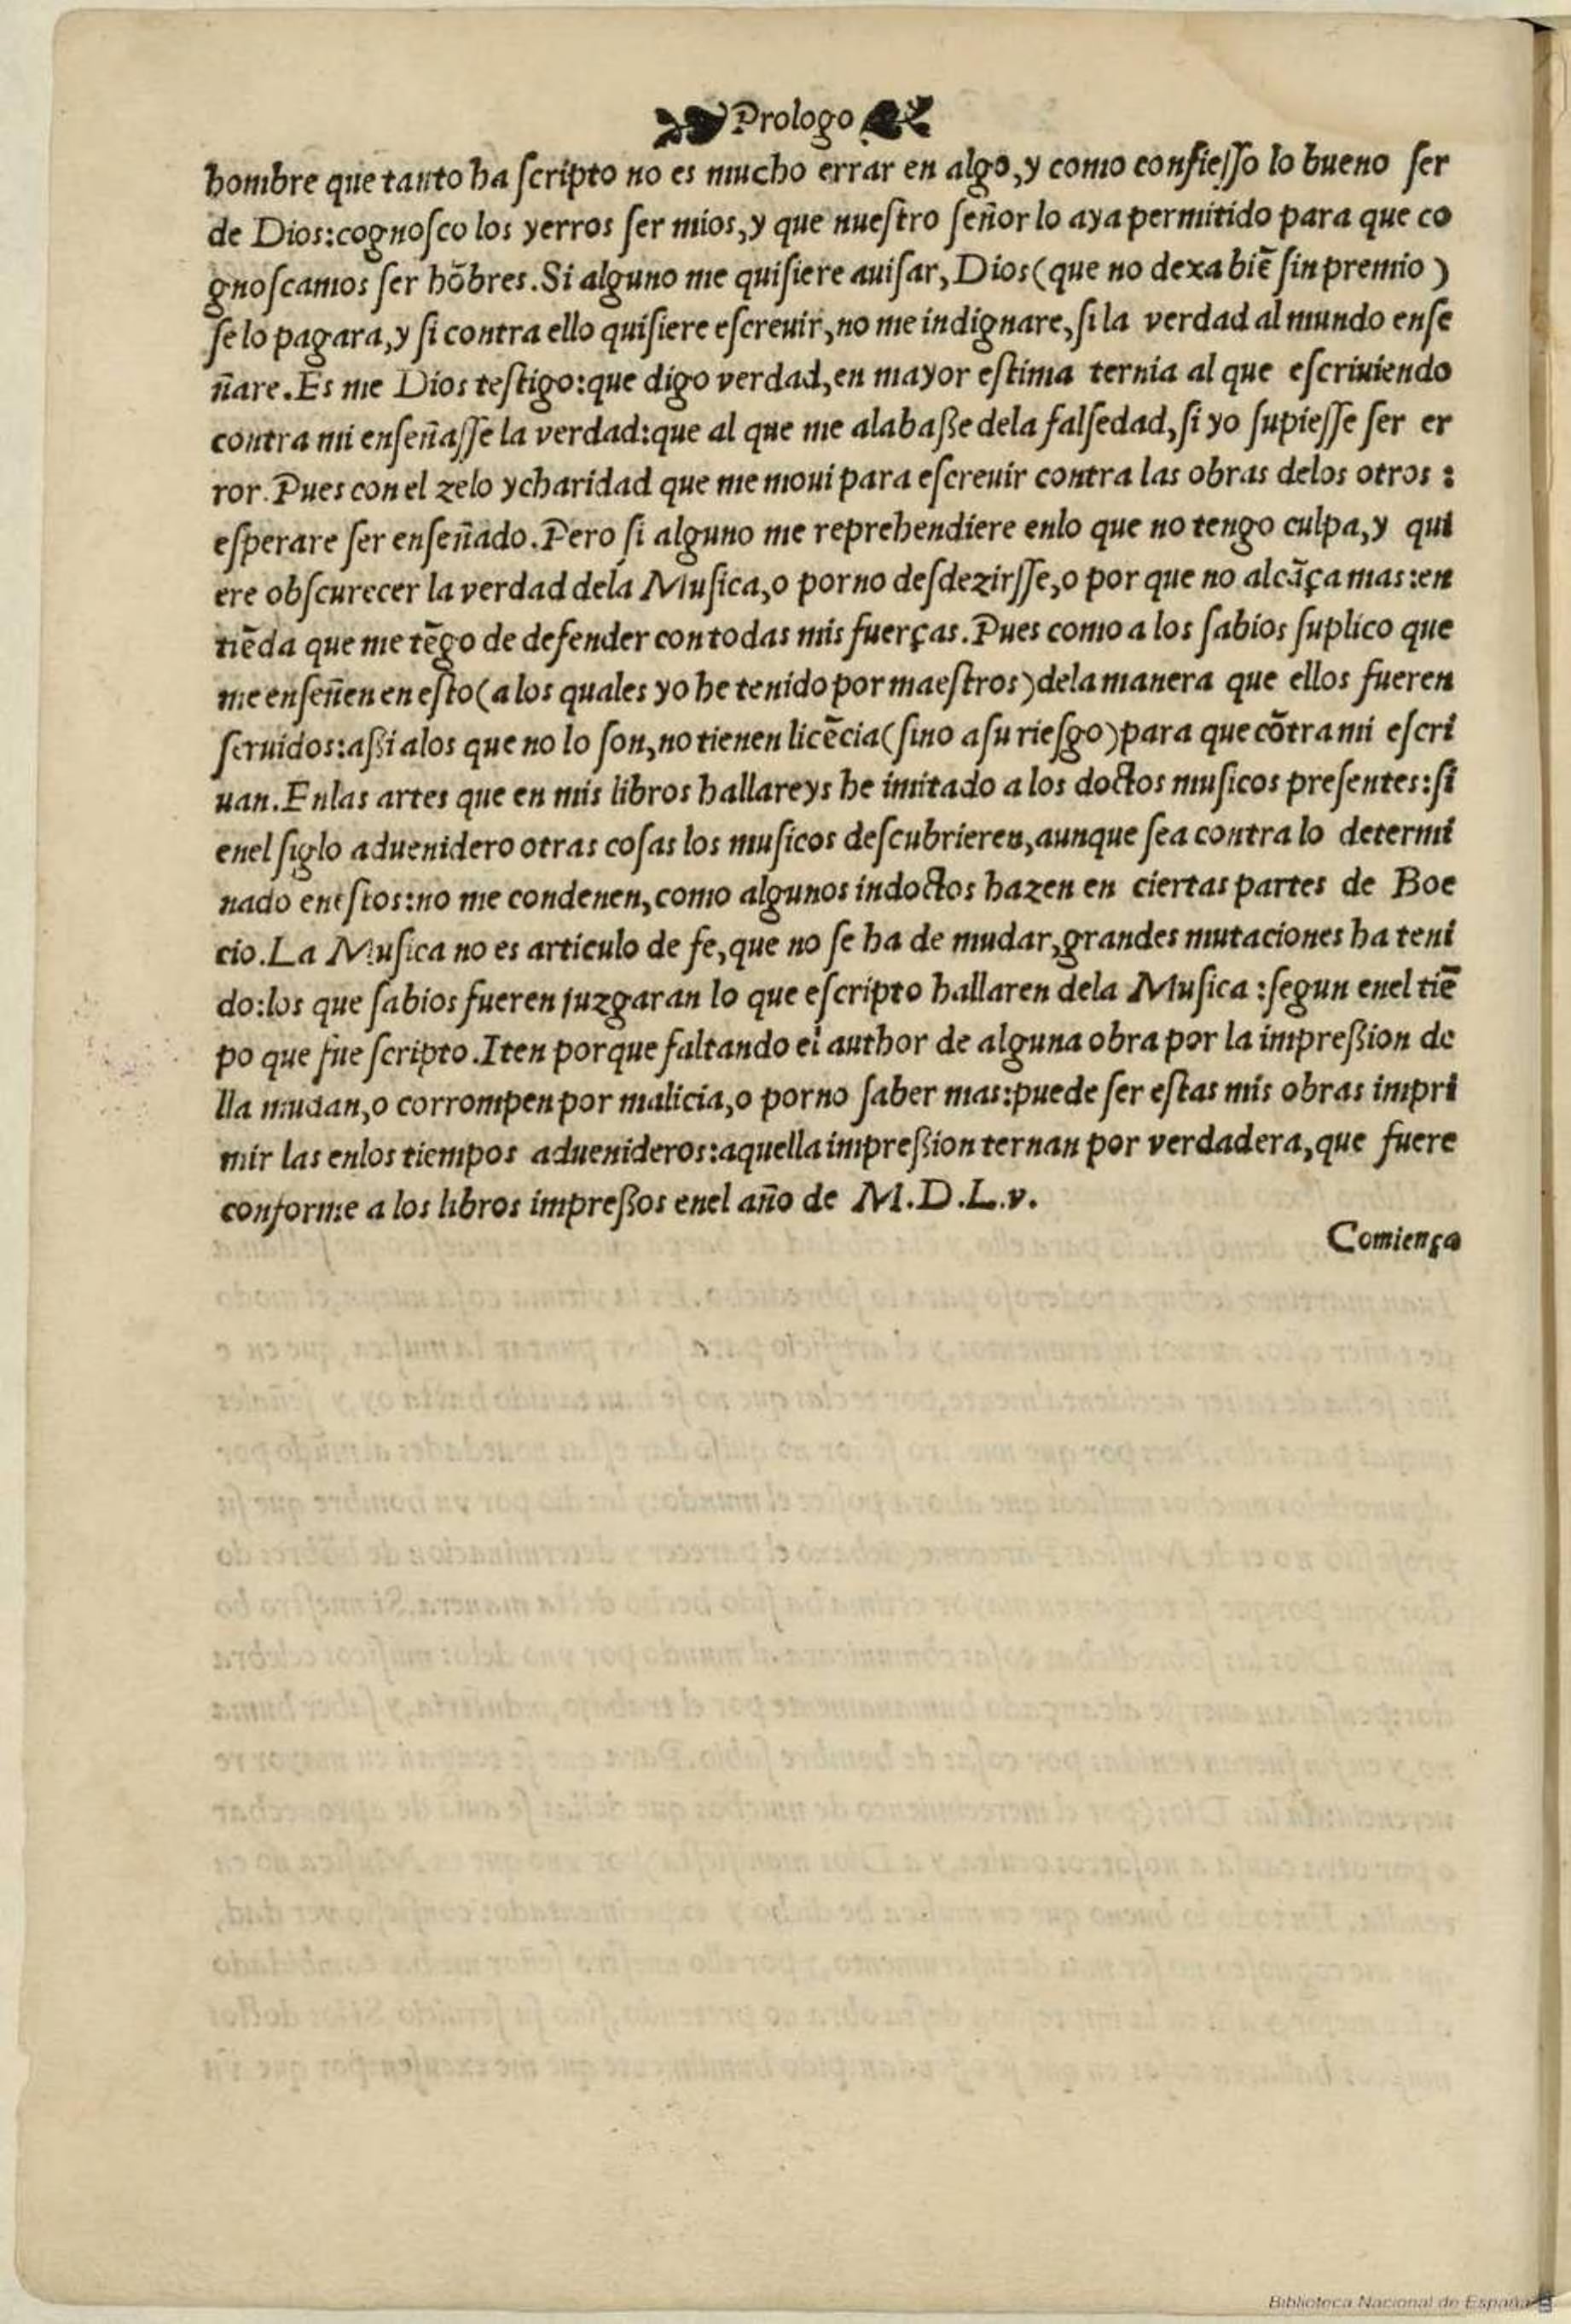 Prologo
hombre que tanto ha ſcripto no es mucho errar en algo, y como confieſſo lo bueno ſer
de Dios: cognoſco los yerros ſer mios, y que nueſtro ſeñor lo aya permitido para que co
gnoſcamos ſer hõbres. Si alguno me quiſiere auiſar, Dios (que no dexa biẽ ſin premio)
ſe lo pagara, y ſi contra ello quiſiere eſcreuir, no me indignare, ſi la verdad al mundo enſe
ñare. Es me Dios teſtigo: que digo verdad, en mayor eſtima ternia al que eſcriuiendo
contra mi enſeñaſſe la verdad: que al que me alabaße dela falſedad, ſi yo ſupieſſe ſer er
ror. Pues con el zelo y charidad que me moui para eſcreuir contra las obras delos otros:
eſperare ſer enſeñado. Pero ſi alguno me reprehendiere enlo que no tengo culpa, y qui
ere obſcurecer la verdad dela Muſica, o por no deſdezirſſe, o por que no alcãça mas: en
tiẽda que me tẽgo de defender con todas mis fuerças. Pues como a los ſabios ſuplico que
me enſeñen en eſto (a los quales yo he tenido por maeſtros) dela manera que ellos fueren
ſeruidos: aßi alos que no lo ſon, no tienen licẽcia (ſino a ſu rieſgo) para que cõtra mi eſcri
uan. Enlas artes que en mis libros hallareys he imitado a los doctos muſicos preſentes: ſi
enel ſiglo aduenidero otras coſas los muſicos deſcubrieren, aunque ſea contra lo determi
nado eneſtos: no me condenen, como algunos indoctos hazen en ciertas partes de Boe
cio. La Muſica no es articulo de fe, que no ſe ha de mudar, grandes mutaciones ha teni
do: los que ſabios fueren juzgaran lo que eſcripto hallaren dela Muſica: ſegun enel tiẽ
po que fue ſcripto. Iten porque faltando el author de alguna obra por la impreßion de
lla mudan, o corrompen por malicia, o por no ſaber mas: puede ſer eſtas mis obras impri
mir las enlos tiempos aduenideros: aquella impreßion ternan por verdadera, que fuere
conforme a los libros impreßos enel año de M.D.L.v.
Comiença
Biblioteca Nacional de España